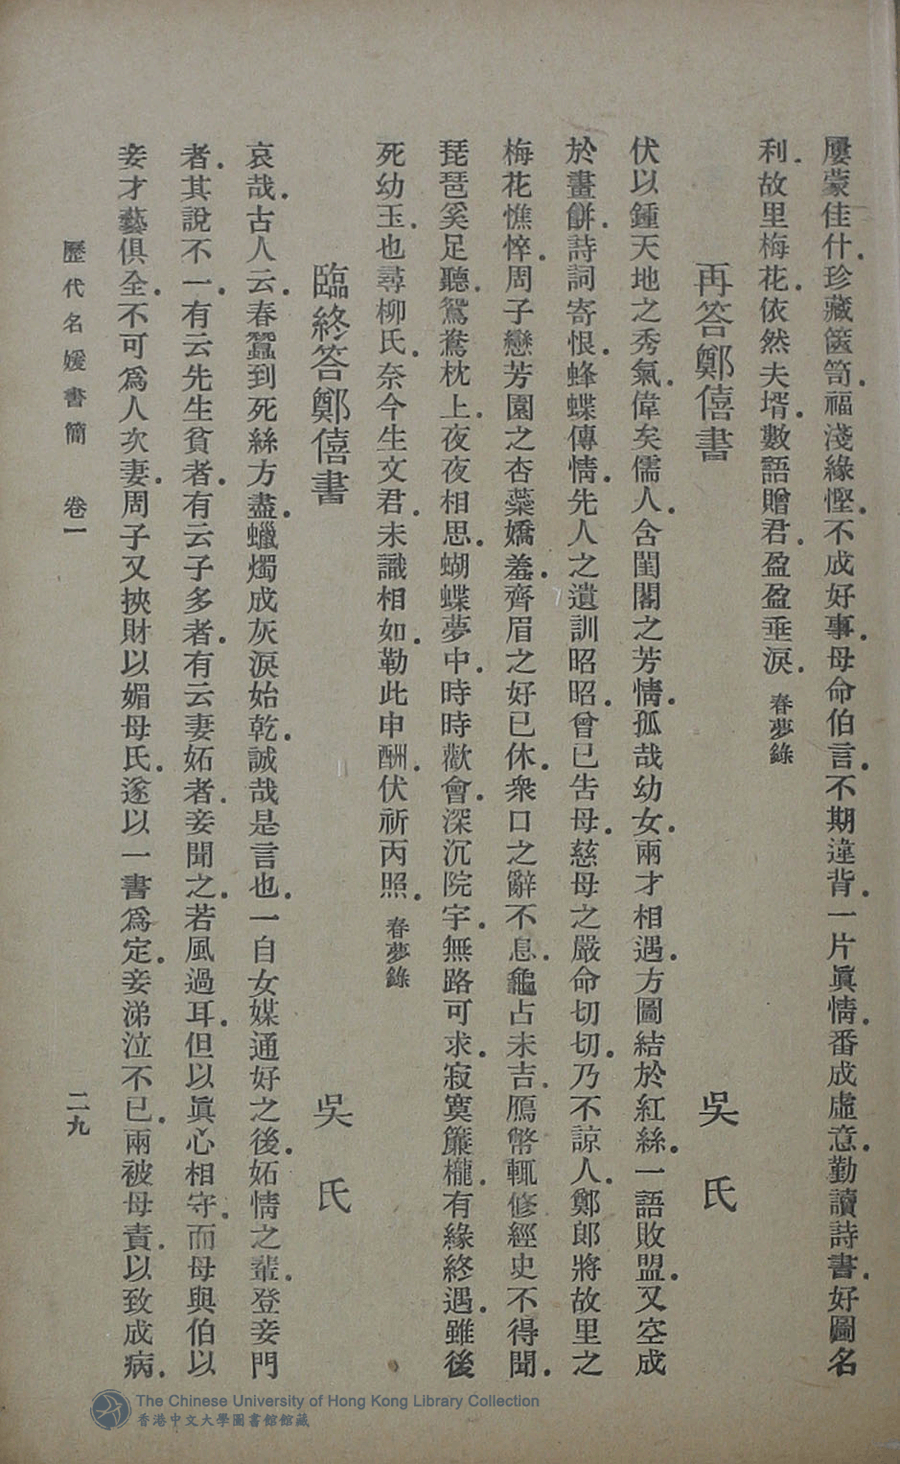 屢蒙佳什．珍藏篋笥．福淺緣慳．不成好事．母命伯言．不期違背．一片眞情．番成虛意．勤讀詩書．好圖名
利．故里梅花．依然夫壻．數語贈君．盈盈垂淚．春夢錄
再答鄭僖書 吳氏
伏以鍾天地之秀氣．偉矣儒人．含閨閣之芳情．孤哉幼女．兩才相遇．方圖結於紅絲．一語敗盟．又空成
於畫餅．詩詞寄恨．蜂蝶傳情．先人之遺訓昭昭．曾已吿母．慈母之嚴命切切．乃不諒人．鄭郎將故里之
梅花憔悴．周子戀芳園之杏蘂嬌羞．齊眉之好已休．衆口之辭不息．龜占未吉．鴈幣輒修．經史不得聞．
琵琶奚足聽．鴛鴦枕上．夜夜相思．蝴蝶夢中．時時歡會．深沉院宇．無路可求．寂寞簾櫳．有緣終遇．雖後
死幼玉．也尋柳氏．奈今生文君．未識相如．勒此申酬．伏祈丙照．春夢錄
臨終答鄭僖書 吳氏
哀哉．古人云．春蠶到死絲方盡．蠟燭成灰淚始乾．誠哉是言也．一自女媒通好之後．妬情之輩．登妾門
者．其說不一．有云先生貧者．有云子多者．有云妻妬者．妾聞之．若風過耳．但以眞心相守．而母與伯以
妾才藝俱全．不可爲人次妻．周子又挾財以媚母氏．遂以一書爲定．妾涕泣不已．兩被母責．以致成病．
歷代名媛書簡 卷一 二九
The Chinese University of Hong Kong Library Collection
香港中文大學圖書館館藏